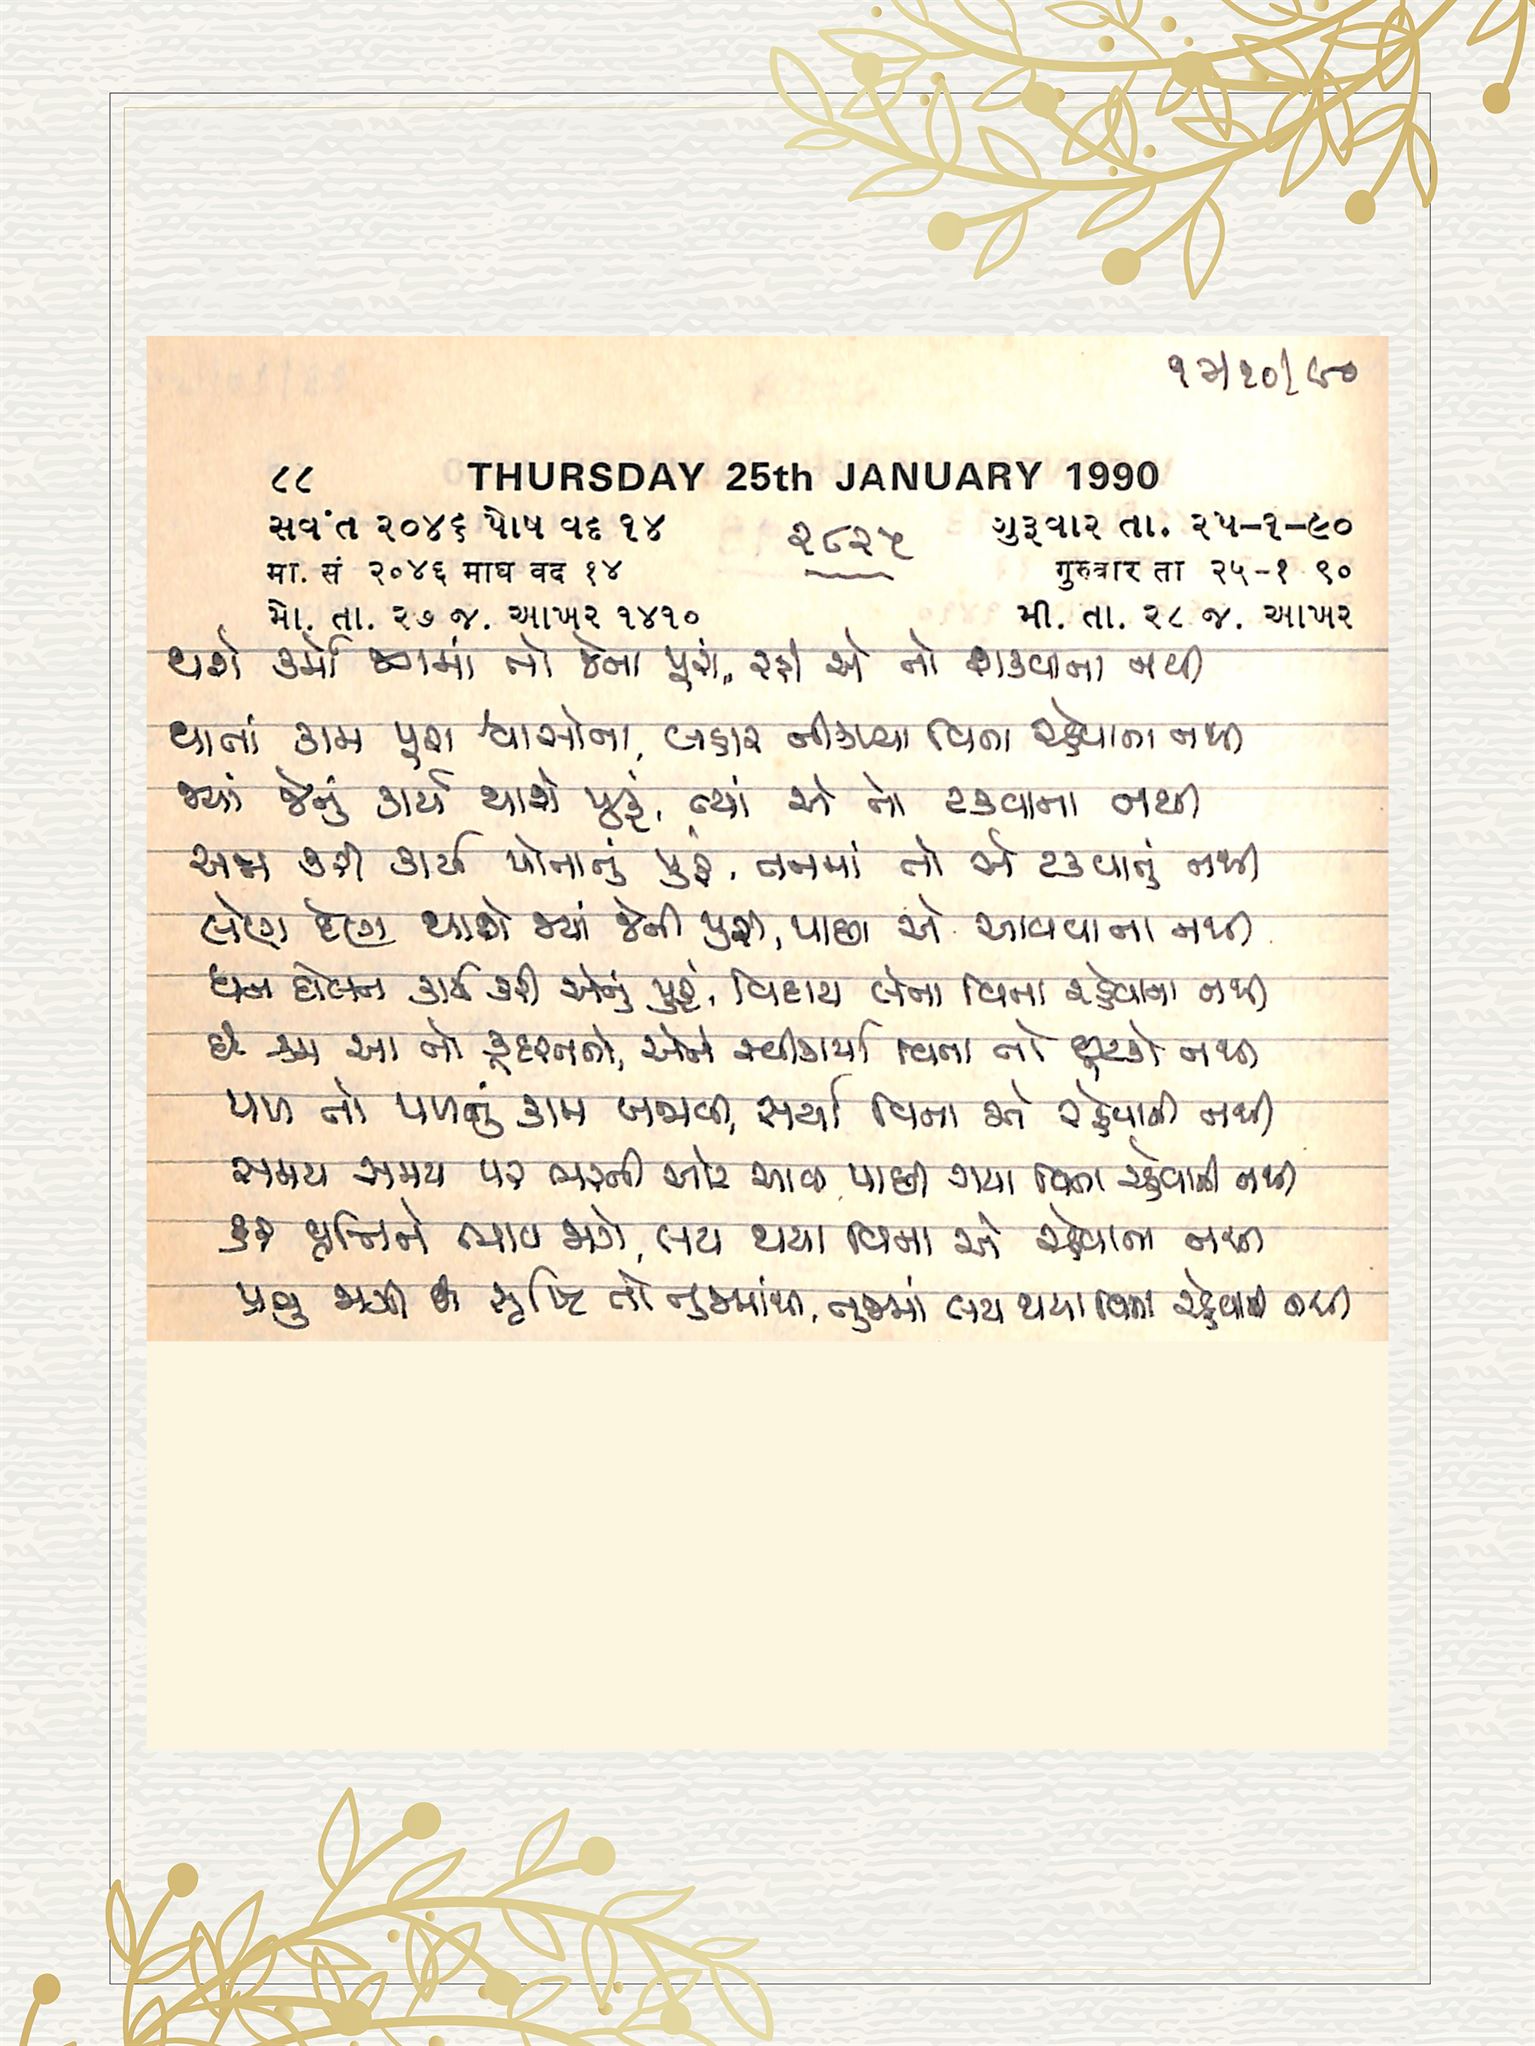 ૧૭/૧૦/૯૦
૮૮ THURSDAY 25th JANUARY 1990
સવંત ૨૦૪૬ પૌષ વદ ૧૪ ૨૮૨૫ ગુરૂવાર તા. ૨૫-૧-૯૦
मा. सं २०४६ माघ वद १४ गुरुवार ता २५-१ ९०
મૌ. તા. ૨૭ જ. આખર ૧૪૧૦ મી. તા. ૨૮ જ. આખર
થાશે કર્મો જગમાં તો જેના પૂરાં, રહી એ તો શકવાના નથી
થાતાં કામ પૂરા શ્વાસોના, બહાર નીકળ્યા વિના રહેવાના નથી
જ્યાં જેનું કાર્ય થાશે પૂરું, ત્યાં એ તો ટકવાના નથી
અન્ન કરી કાર્ય પોતાનું પુરું, તનમાં તો એ ટકવાનું નથી
લેણ દેણ થાશે જ્યાં જેની પુરી, પાછા એ આવવાના નથી
ધન દોલત કાર્ય કરી એનું પુરું, વિદાય લેતા વિના રહેવાના નથી
છે ક્રમ આ તો કૂદરતનો, એને સ્વીકાર્યા વિના તો છૂટકો નથી
પળ તો પળનું કામ બજાવી, સર્યા વિના એ રહેવાની નથી
સમય સમય પર ભરતી ઓટ આવી પાછી ગયા વિના રહેવાની નથી
હર વૃત્તિને ભાવ જાગે, લય થયા વિના એ રહેવાના નથી
પ્રભુ જાગી છે સૃષ્ટિ તો તુજમાંથી, તુજમાં લય થયા વિના રહેવાની નથી